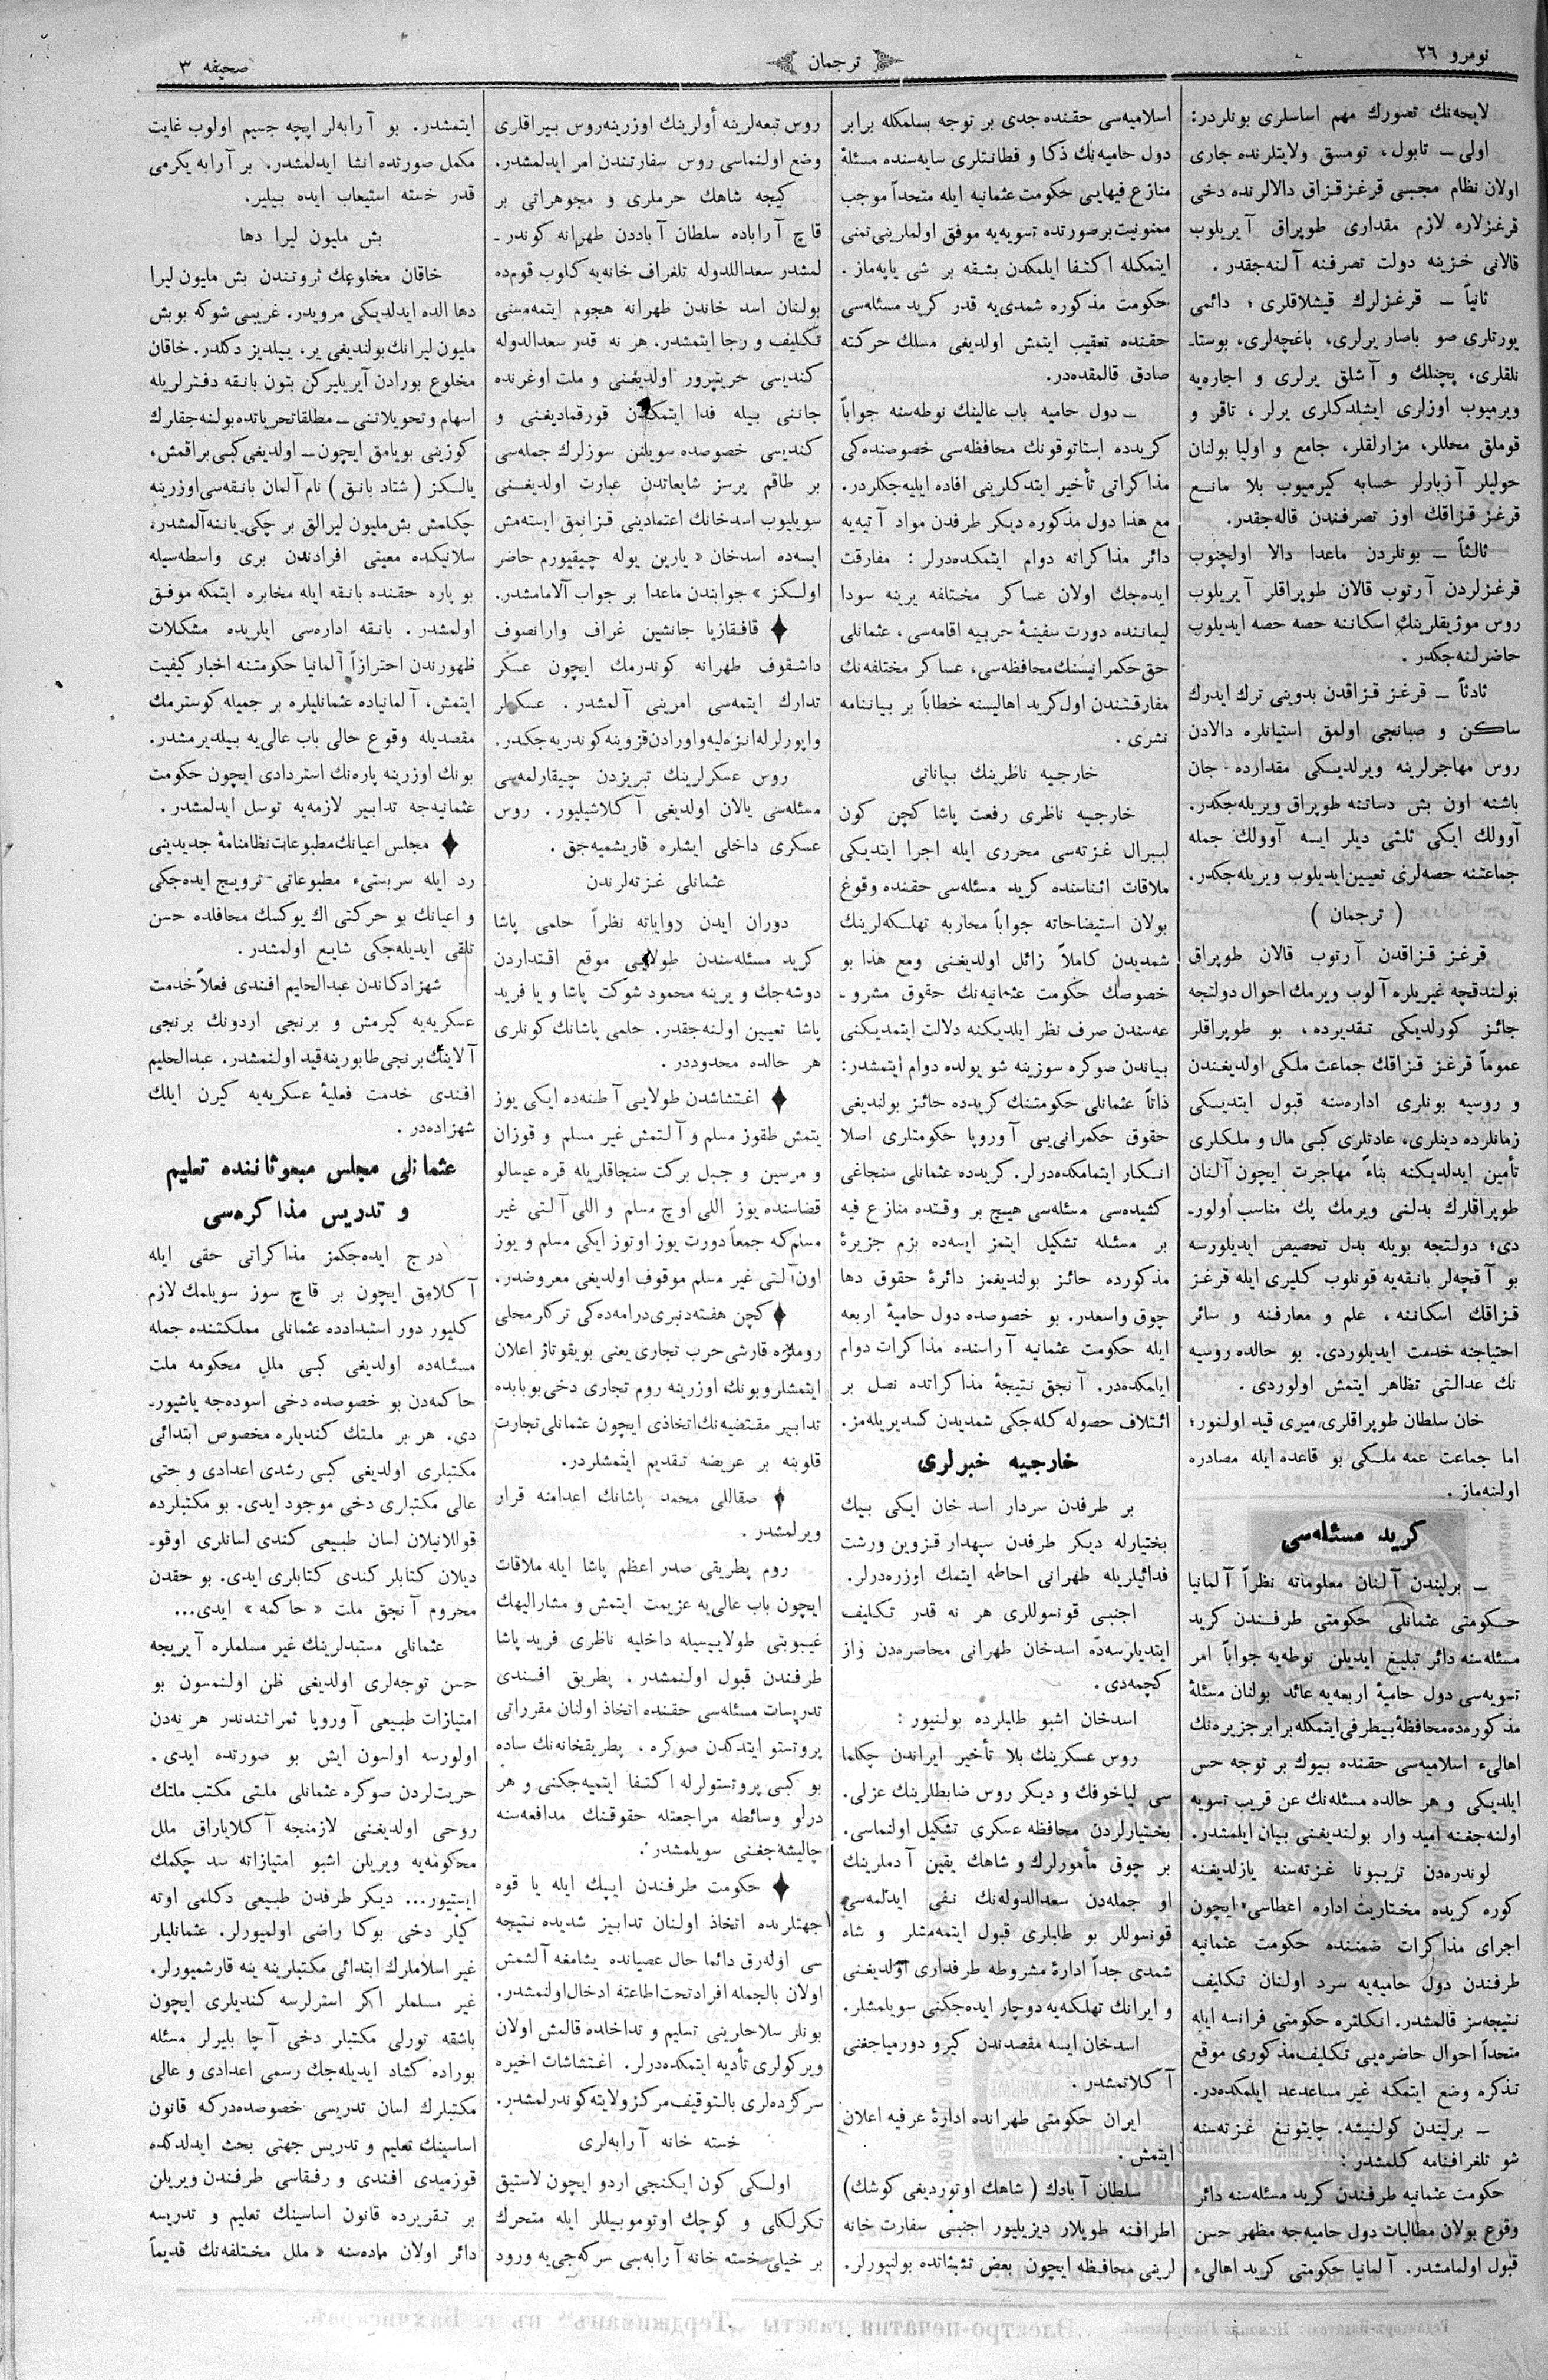 نومرو ٢٦
ترجمان
صحیفه ٣
لایحه‌نك تصورك مهم اساسلری بونلردر:
اولی ــ تابول، تومسق ولایتلرنده جاری
اولان نظام مجبی قرغز‌قزاق دالالرنده دخی
قرغزلاره لازم مقداری طوپراق آیریلوب
قالانی خزینه دولت تصرفنه آلنه‌جقدر.
ثانیاً ــ قرغزلرك قیشلاقلری؛ دائمی
یورتلری صو باصار یرلری، باغچه‌لری، بوستا-
نلقلری، پچنلك و آشلق یرلری و اجاره‌یه
ویرمیوب اوزلری ایشلدكلری یرلر، تاقر و
قوملق محللر، مزارلقلر، جامع و اولیا بولنان
حولیلر آزبارلر حسابه كیرمیوب بلا مانع
قرغز قزاقك اوز تصرفندن قاله‌جقدر.
ثالثاً ــ بونلردن ماعدا دالا اولچنوب
قرغزلردن آرتوب قالان طوپراقلر آیریلوب
روس موژیقلرینك اسكاننه حصه حصه ایدیلوب
حاضرلنه‌جكدر.
ثادثاً ــ قرغز قزاقدن بدوینی ترك ایدرك
ساكن و صبانجی اولمق استیانلره دالادن
روس مهاجرلرینه ویرلدیكی مقدارده جان
باشنه اون بش دساتنه طوپراق ویریله‌جكدر.
آوولك ایكی ثلثی دیلر ایسه آوولك جمله
جماعتنه حصه‌لری تعیین ایدیلوب ویریله‌جكدر.
( ترجمان )
قرغز قزاقدن آرتوب قالان طوپراق
بولندقچه غیریلره آلوب ویرمك احوال دولتجه
جائز كورلدیكی تقدیرده، بو طوپراقلر
عموماً قرغز قزاقك جماعت ملكی اولدیغندن
و روسیه بونلری اداره‌سنه قبول ایتدیكی
زمانلرده دینلری، عادتلری كبی مال و ملكلری
تأمین ایدلدیكنه بناءً مهاجرت ایچون آلنان
طوپراقلرك بدلنی ویرمك پك مناسب أولور-
دی؛ دولتجه بویله بدل تخصیص ایدیلورسه
بو آقچه‌لر بانقه‌یه قونلوب كلیری ایله قرغز
قزاقك اسكاننه، علم و معارفنه و سائر
احتیاجنه خدمت ایدیلوردی. بو حالده روسیه
نك عدالتی تظاهر ایتمش اولوردی.
خان سلطان طوپراقلری میری قید اولنور؛
اما جماعت عمه ملكی بو قاعده ایله مصادره
اولنه‌ماز.
كرید مسئله‌سی
ــ برلیندن آلنان معلوماته نظراً آلمانیا
حكومتی عثمانلی حكومتی طرفندن كرید
مسئله‌سنه دائر تبلیغ ایدیلن نوطه‌یه جواباً امر
تسویه‌سی دول حامیهٔ اربعه‌یه عائد بولنان مسئلهٔ
مذكوره‌ده محافظهٔ بیطرفی ایتمكله برابر جزیره‌نك
اهالیء اسلامیه‌سی حقنده بیوك بر توجه حس
ایلدیكی و هر حالده مسئله‌نك عن قریب تسویه
اولنه‌جغنه امید وار بولندیغنی بیان ایلمشدر.
لوندره‌دن تریبونا غزته‌سنه یازلدیغنه
كوره كریده مختاریت اداره اعطاسی ایچون
اجرای مذاكرات ضمننده حكومت عثمانیه
طرفندن دول حامیه‌یه سرد اولنان تكلیف
نتیجه‌سز قالمشدر. انكلتره حكومتی فرانسه ایله
متحداً احوال حاضره‌یی تكلیف مذكوری موقع
تذكره وضع ایتمكه غیر مساعد عد ایلمكده‌در.
ــ برلیندن كولنیشه. چایتونغ غزته‌سنه
شو تلغرافنامه كلمشدر:
حكومت عثمانیه طرفندن كرید مسئله‌سنه دائر
وقوع بولان مطالبات دول حامیه‌جه مظهر حسن
قبول اولمامشدر. آلمانیا حكومتی كرید اهالیء
اسلامیه‌سی حقنده جدی بر توجه بسلمكله برابر
دول حامیه‌نك ذكا و فطانتلری سایه‌سنده مسئلهٔ
منازع فیهایی حكومت عثمانیه ایله متحداً موجب
ممنونیت بر صورتده تسویه‌یه موفق اولملرینی تمنی
ایتمكله اكتفا ایلمكدن بشقه بر شی یاپه‌ماز.
حكومت مذكوره شمدی‌یه قدر كرید مسئله‌سی
حقنده تعقیب ایتمش اولدیغی مسلك حركته
صادق قالمقده‌در.
ــ دول حامیه باب عالینك نوطه‌سنه جواباً
كریدده استاتوقونك محافظه‌سی خصوصنده‌كی
مذاكراتی تأخیر ایتدكلرینی افاده ایلیه‌جكلردر.
مع هذا دول مذكوره دیكر طرفدن مواد آتیه‌یه
دائر مذاكراته دوام ایتمكده‌درلر: مفارقت
ایده‌جك اولان عساكر مختلفه یرینه سودا
لیماننده دورت سفینهٔ حربیه اقامه‌سی، عثمانلی
حق حكمرانیسنك محافظه‌سی، عساكر مختلفه‌نك
مفارقتندن اول كرید اهالیسنه خطاباً بر بیاننامه
نشری.
خارجیه ناظرینك بیاناتی
خارجیه ناظری رفعت پاشا كچن كون
لیبرال غزته‌سی محرری ایله اجرا ایتدیكی
ملاقات اثناسنده كرید مسئله‌سی حقنده وقوع
بولان استیضاحاته جواباً محاربه تهلكه‌لرینك
شمدیدن كاملاً زائل اولدیغنی ومع هذا بو
خصوصك حكومت عثمانیه‌نك حقوق مشرو-
عه‌سندن صرف نظر ایلدیكنه دلالت ایتمدیكنی
بیاندن صوكره سوزینه شو یولده دوام ایتمشدر:
ذاتاً عثمانلی حكومتنك كریدده حائز بولندیغی
حقوق حكمرانی‌یی آوروپا حكومتلری اصلا
انكار ایتمامكده‌درلر. كریدده عثمانلی سنجاغی
كشیده‌سی مسئله‌سی هیچ بر وقتده منازع فیه
بر مسئله تشكیل ایتمز ایسه‌ده بزم جزیرهٔ
مذكورده حائز بولندیغمز دائرهٔ حقوق دها
چوق واسعدر. بو خصوصده دول حامیهٔ اربعه
ایله حكومت عثمانیه آراسنده مذاكرات دوام
ایلمكده‌در. آنجق نتیجهٔ مذاكراتده نصل بر
ائتلاف حصوله كله‌جكی شمدیدن كسدیریله‌مز.
خارجیه خبرلری
بر طرفدن سردار اسدخان ایكی بیك
بختیارله دیكر طرفدن سپهدار قزوین ورشت
فدائیلریله طهرانی احاطه ایتمك اوزره‌درلر.
اجنبی قونسوللری هر نه قدر تكلیف
ایتدیلرسه‌ده اسدخان طهرانی محاصره‌دن واز
كچمه‌دی.
اسدخان اشبو طلبلرده بولنیور:
روس عسكرینك بلا تأخیر ایراندن چكلما
سی لیاخوفك و دیكر روس ضابطلرینك عزلی.
بختیارلردن محافظه عسكری تشكیل اولنماسی.
بر چوق مأمورلرك و شاهك یقین آدملرینك
او جمله‌دن سعدالدوله‌نك نفی ایدلمه‌سی
قونسوللر بو طلبلری قبول ایتمه‌مشلر و شاه
شمدی جداً ادارهٔ مشروطه طرفداری اولدیغنی
و ایرانك تهلكه‌یه دوچار ایده‌جكنی سویلمشلر.
اسدخان ایسه مقصدندن كیرو دورمیاجغنی
آكلاتمشدر.
ایران حكومتی طهرانده ادارهٔ عرفیه اعلان
ایتمش.
سلطان آبادك ( شاهك اوتوردیغی كوشك)
اطرافنه طوپلار دیزیلیور اجنبی سفارت خانه
لرینی محافظه ایچون بعض تشبثاتده بولنیورلر.
روس تبعه‌لرینه أولرینك اوزرینه روس بیراقلری
وضع اولنماسی روس سفارتندن امر ایدلمشدر.
كیجه شاهك حرملری و مجوهراتی بر
قاچ آراباده سلطان آباددن طهرانه كوندر-
لمشدر سعداللدوله تلغراف خانه‌یه كلوب قوم‌ده
بولنان اسد خاندن طهرانه هجوم ایتمه‌مسنی
تكلیف و رجا ایتمشدر. هر نه قدر سعدالدوله
كندیسی حریتپرور اولدیغنی و ملت اوغرنده
جاننی بیله فدا ایتمكدن قورقمادیغنی و
كندیسی خصوصده سویلنن سوزلرك جمله‌سی
بر طاقم یرسز شایعاتدن عبارت اولدیغنی
سویلیوب اسدخانك اعتمادینی قزانمق ایسته‌مش
ایسه‌ده اسدخان « یارین یوله چیقیورم حاضر
اولكز » جوابندن ماعدا بر جواب آلامامشدر.
♦ قافقازیا جانشین غراف وارانصوف
داشقوف طهرانه كوندرمك ایچون عسكر
تدارك ایتمه‌سی امرینی آلمشدر. عسكرلر
واپورلرله انزه‌لیه واورادن قزوینه كوندریه‌جكدر.
روس عسكرلرینك تبریزدن چیقارلمه‌سی
مسئله‌سی یالان اولدیغی آكلاشیلیور. روس
عسكری داخلی ایشلره قاریشمیه‌جق.
عثمانلی غزته‌لرندن
دوران ایدن روایاته نظراً حلمی پاشا
كرید مسئله‌سندن طولایی موقع اقتداردن
دوشه‌جك و یرینه محمود شوكت پاشا و یا فرید
پاشا تعیین اولنه‌جقدر. حلمی پاشانك كونلری
هر حالده محدوددر.
♦ اغتشاشدن طولایی آطنه‌ده ایكی یوز
یتمش طقوز مسلم و آلتمش غیر مسلم و قوزان
و مرسین و جبل بركت سنجاقلریله قره عیسالو
قضاسنده یوز اللی اوچ مسلم و اللی آلتی غیر
مسلم كه جمعاً دورت یوز اوتوز ایكی مسلم و یوز
اون آلتی غیر مسلم موقوف اولدیغی معروضدر.
♦ كچن هفته‌دنبری درامه‌ده‌كی تركلر محلی
روملره قارشی حرب تجاری یعنی بویقوتاژ اعلان
ایتمشلر و بونك اوزرینه روم تجاری دخی بو بابده
تدابیر مقتضیه‌نك اتخاذی ایچون عثمانلی تجارت
قلوبنه بر عریضه تقدیم ایتمشلردر.
♦ صقاللی محمد پاشانك اعدامنه قرار
ویرلمشدر.
روم پطریقی صدر اعظم پاشا ایله ملاقات
ایچون باب عالی‌یه عزیمت ایتمش و مشارالیهك
غیبوبتی طولاییسیله داخلیه ناظری فرید پاشا
طرفندن قبول اولنمشدر. پطریق افندی
تدریسات مسئله‌سی حقنده اتخاذ اولنان مقرراتی
پروتستو ایتدكدن صوكره. پطریقخانه‌نك ساده
بو كبی پروتستولرله اكتفا ایتمیه‌جكنی و هر
درلو وسائطه مراجعتله حقوقنك مدافعه‌سنه
چالیشه‌جغنی سویلمشدر.
♦ حكومت طرفندن ایپك ایله یا قوه
جهتلرنده اتخاذ اولنان تدابیر شدیده نتیجه
سی اوله‌رق دائما حال عصیانده یشامغه آلشمش
اولان بالجمله افراد تحت اطاعته ادخال اولنمشدر.
بونلر سلاحلرینی تسلیم و تداخلده قالمش اولان
ویركولری تأدیه ایتمكده‌درلر. اغتشاشات اخیره
سركرده‌لری بالتوقیف مركز ولایته كوندرلمشدر.
خسته خانه آرابه‌لری
اولكی كون ایكنجی اردو ایچون لاستیق
تكرلكلی و كوچك اوتوموبیللر ایله متحرك
بر خیلی خسته خانه آرابه‌سی سركه‌جی‌یه ورود
ایتمشدر. بو آرابه‌لر اپچه جسیم اولوب غایت
مكمل صورتده انشا ایدلمشدر. بر آرابه یكرمی
قدر خسته استیعاب ایده بیلیر.
بش ملیون لیرا دها
خاقان مخلوعك ثروتندن بش ملیون لیرا
دها الده ایدلدیكی مرویدر. غریبی شوكه بو بش
ملیون لیرانك بولندیغی یر، ییلدیز دكلدر. خاقان
مخلوع بورادن آیریلیركن بتون بانقه دفترلریله
اسهام و تحویلاتنی ــ مطلقا تحریاتده بولنه جقلرك
كوزینی بویامق ایچون ــ اولدیغی كبی براقمش،
یالكز ( شتاد بانق ) نام آلمان بانقه‌سی اوزرینه
چكلمش بش ملیون لیرالق بر چكی یاننه آلمشدر.
سلانیكده معیتی افرادندن بری واسطه‌سیله
بو پاره حقنده بانقه ایله مخابره ایتمكه موفق
اولمشدر. بانقه اداره‌سی ایلریده مشكلات
ظهورندن احترازاً آلمانیا حكومتنه اخبار كیفیت
ایتمش، آلمانیاده عثمانلیلره بر جمیله كوسترمك
مقصدیله وقوع حالی باب عالی‌یه بیلدیرمشدر.
بونك اوزرینه پاره‌نك استردادی ایچون حكومت
عثمانیه‌جه تدابیر لازمه‌یه توسل ایدلمشدر.
♦ مجلس اعیانك مطبوعات نظامنامهٔ جدیدینی
رد ایله سربستیء مطبوعاتی ترویج ایده‌جكی
و اعیانك بو حركتی اك یوكسك محافلده حسن
تلقی ایدیله‌جكی شایع اولمشدر.
شهزادكاندن عبدالحلیم افندی فعلاً خدمت
عسكریه‌یه كیرمش و برنجی اردونك برنجی
آلاینك برنجی طابورینه قید اولنمشدر. عبدالحلیم
افندی خدمت فعلیهٔ عسكریه‌یه كیرن ایلك
شهزاده‌در.
عثمانلی مجلس مبعوثاننده تعلیم
و تدریس مذاكره‌سی
درج ایده‌جكمز مذاكراتی حقی ایله
آكلامق ایچون بر قاچ سوز سویلمك لازم
كلیور دور استبدادده عثمانلی مملكتنده جمله
مسئله‌ده اولدیغی كبی ملل محكومه ملت
حاكمه‌دن بو خصوصده دخی اسوده‌جه یاشیور-
دی. هر بر ملتك كندیلره مخصوص ابتدائی
مكتبلری اولدیغی كبی رشدی اعدادی و حتی
عالی مكتبلری دخی موجود ایدی. بو مكتبلرده
قوللانیلان لسان طبیعی كندی لسانلری اوقو-
دیلان كتابلر كندی كتابلری ایدی. بو حقدن
محروم آنجق ملت « حاكمه » ایدی...
عثمانلی مستبدلرینك غیر مسلملره آیریجه
حسن توجه‌لری اولدیغی ظن اولنمسون بو
امتیازات طبیعی آوروپا ثمراتندندر هر نه‌دن
اولورسه اولسون ایش بو صورتده ایدی.
حریت‌لردن صوكره عثمانلی ملتی مكتب ملتك
روحی اولدیغنی لازمنجه آكلایاراق ملل
محكومه‌یه ویریلن اشبو امتیازاته سد چكمك
ایستیور... دیكر طرفدن طبیعی دكلمی اوته
كیلر دخی بوكا راضی اولمیورلر. عثمانلیلر
غیر اسلاملرك ابتدائی مكتبلرینه ینه قارشمیورلر.
غیر مسلملر اكر استرلرسه كندیلری ایچون
باشقه تورلی مكتبلر دخی آچا بلیرلر مسئله
بوراده كشاد ایدیله‌جك رسمی اعدادی و عالی
مكتبلرك لسان تدریسی خصوصده‌دركه قانون
اساسینك تعلیم و تدریس جهتی بحث ایدلدكده
قوزمیدی افندی و رفقاسی طرفندن ویریلن
بر تقریرده قانون اساسینك تعلیم و تدریسه
دائر اولان ماده‌سنه « ملل مختلفه‌نك قدیماً